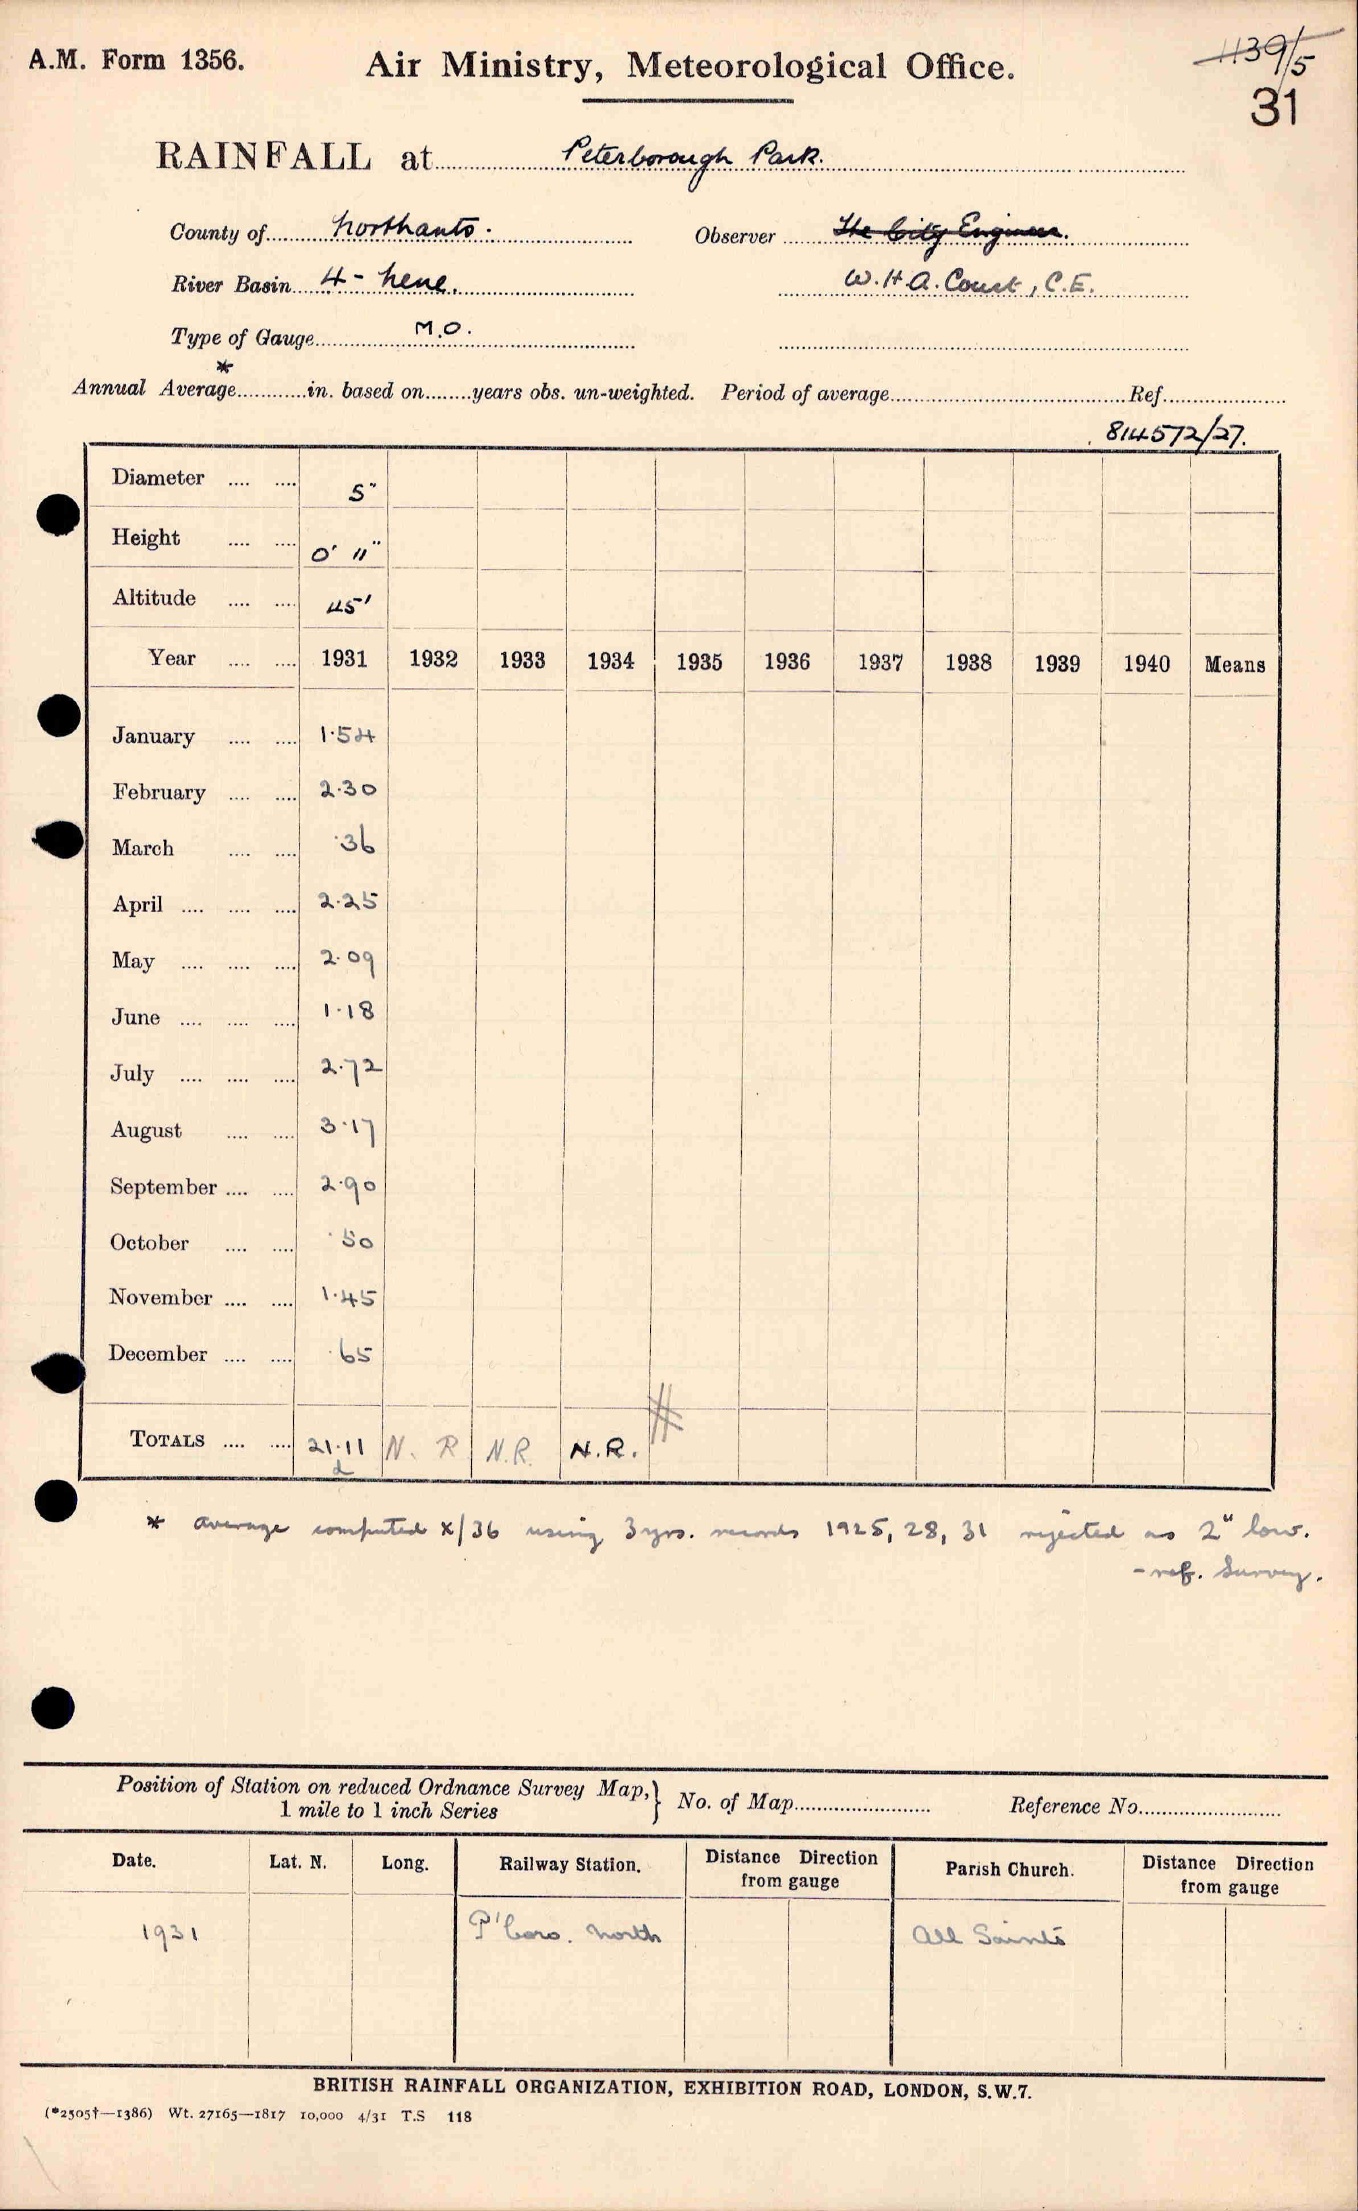 A.M. Form 1356.
Air Ministry, Meteorological Office.
1139/5
31
RAINFALL at Peterborough Park.
County of Northants.
Observer The City Engineer.
River Basin 4 - Nene.
W.H.A. Court, C.E.
Type of Gauge M.O.
*
Annual Average in. based on years obs. un-weighted. Period of average Ref.
814572/27.
Diameter .... .... 5"
Height .... .... 0' 11"
Altitude .... .... 45'
Year .... .... 1931 1932 1933 1934 1935 1936 1937 1938 1939 1940 Means
January .... .... 1.54
February .... .... 2.30
March .... .... .36
April .... .... .... 2.25
May .... .... .... 2.09
June .... .... .... 1.18
July .... .... .... 2.72
August .... .... 3.17
September .... .... 2.90
October .... .... .50
November .... .... 1.45
December .... .... .65
TOTALS .... .... 21.11 N. R N.R. N.R.
* average computed x/36 using 3 yrs. records 1925, 28, 31 rejected as 2" low.
- ref. Survey.
Position of Station on reduced Ordnance Survey Map, } No. of Map Reference No.
1 mile to 1 inch Series
Date. Lat. N. Long. Railway Station. Distance Direction from gauge Parish Church. Distance Direction from gauge
1931 P'boro. North All Saints
BRITISH RAINFALL ORGANIZATION, EXHIBITION ROAD, LONDON, S.W.7.
(*2505†—1386) Wt. 27165—1817 10,000 4/31 T.S 118